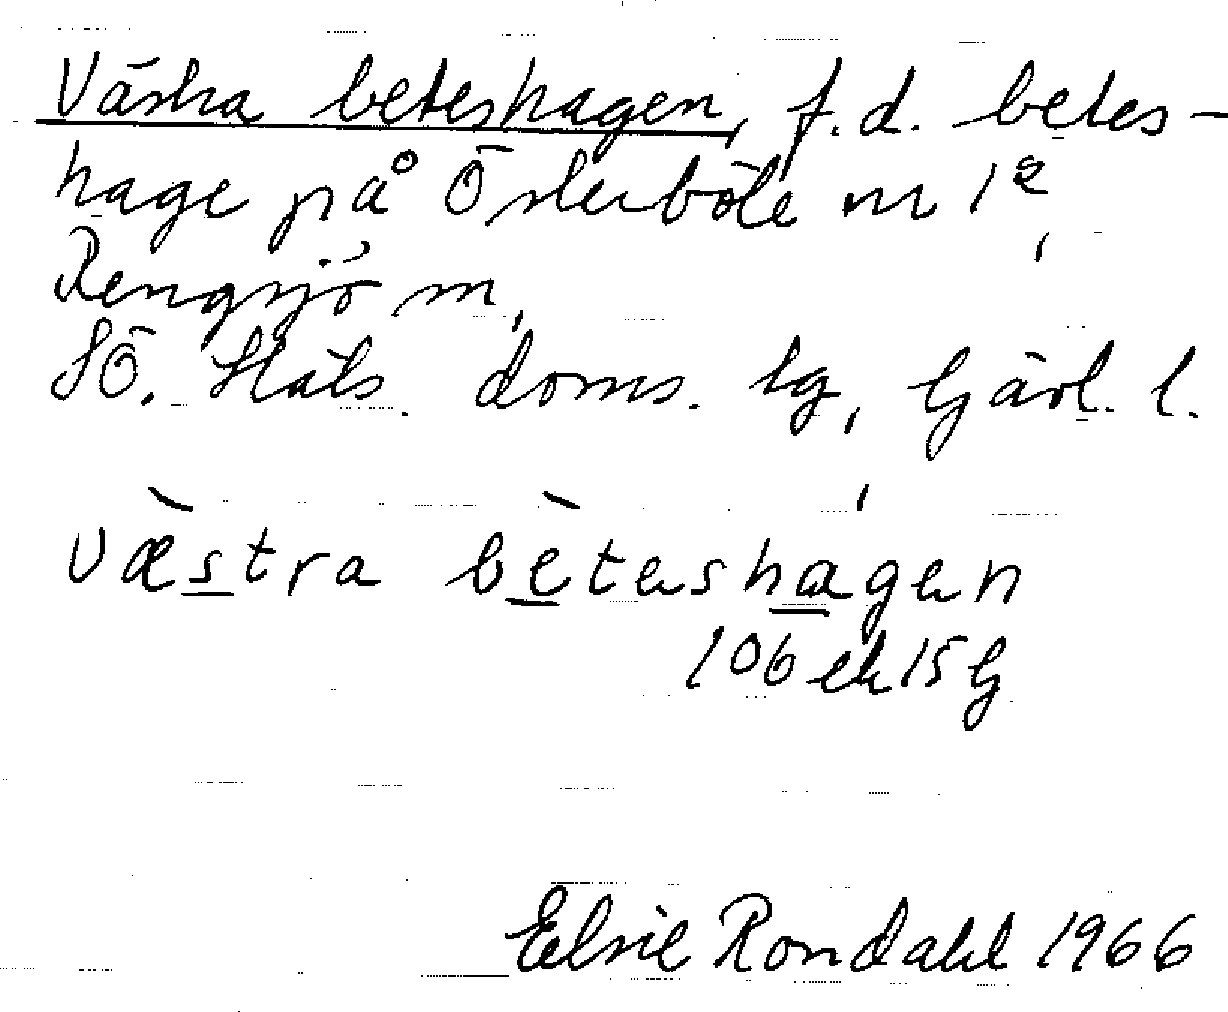 Västra beteshagen, f.d. betes-
hage på Österböle nr 1²,
Rengsjö sn,
SÖ. Häls. doms. lg, Gävl. l.
væstra bèteshagen
106 ek 15 G
Elsie Rondahl 1966